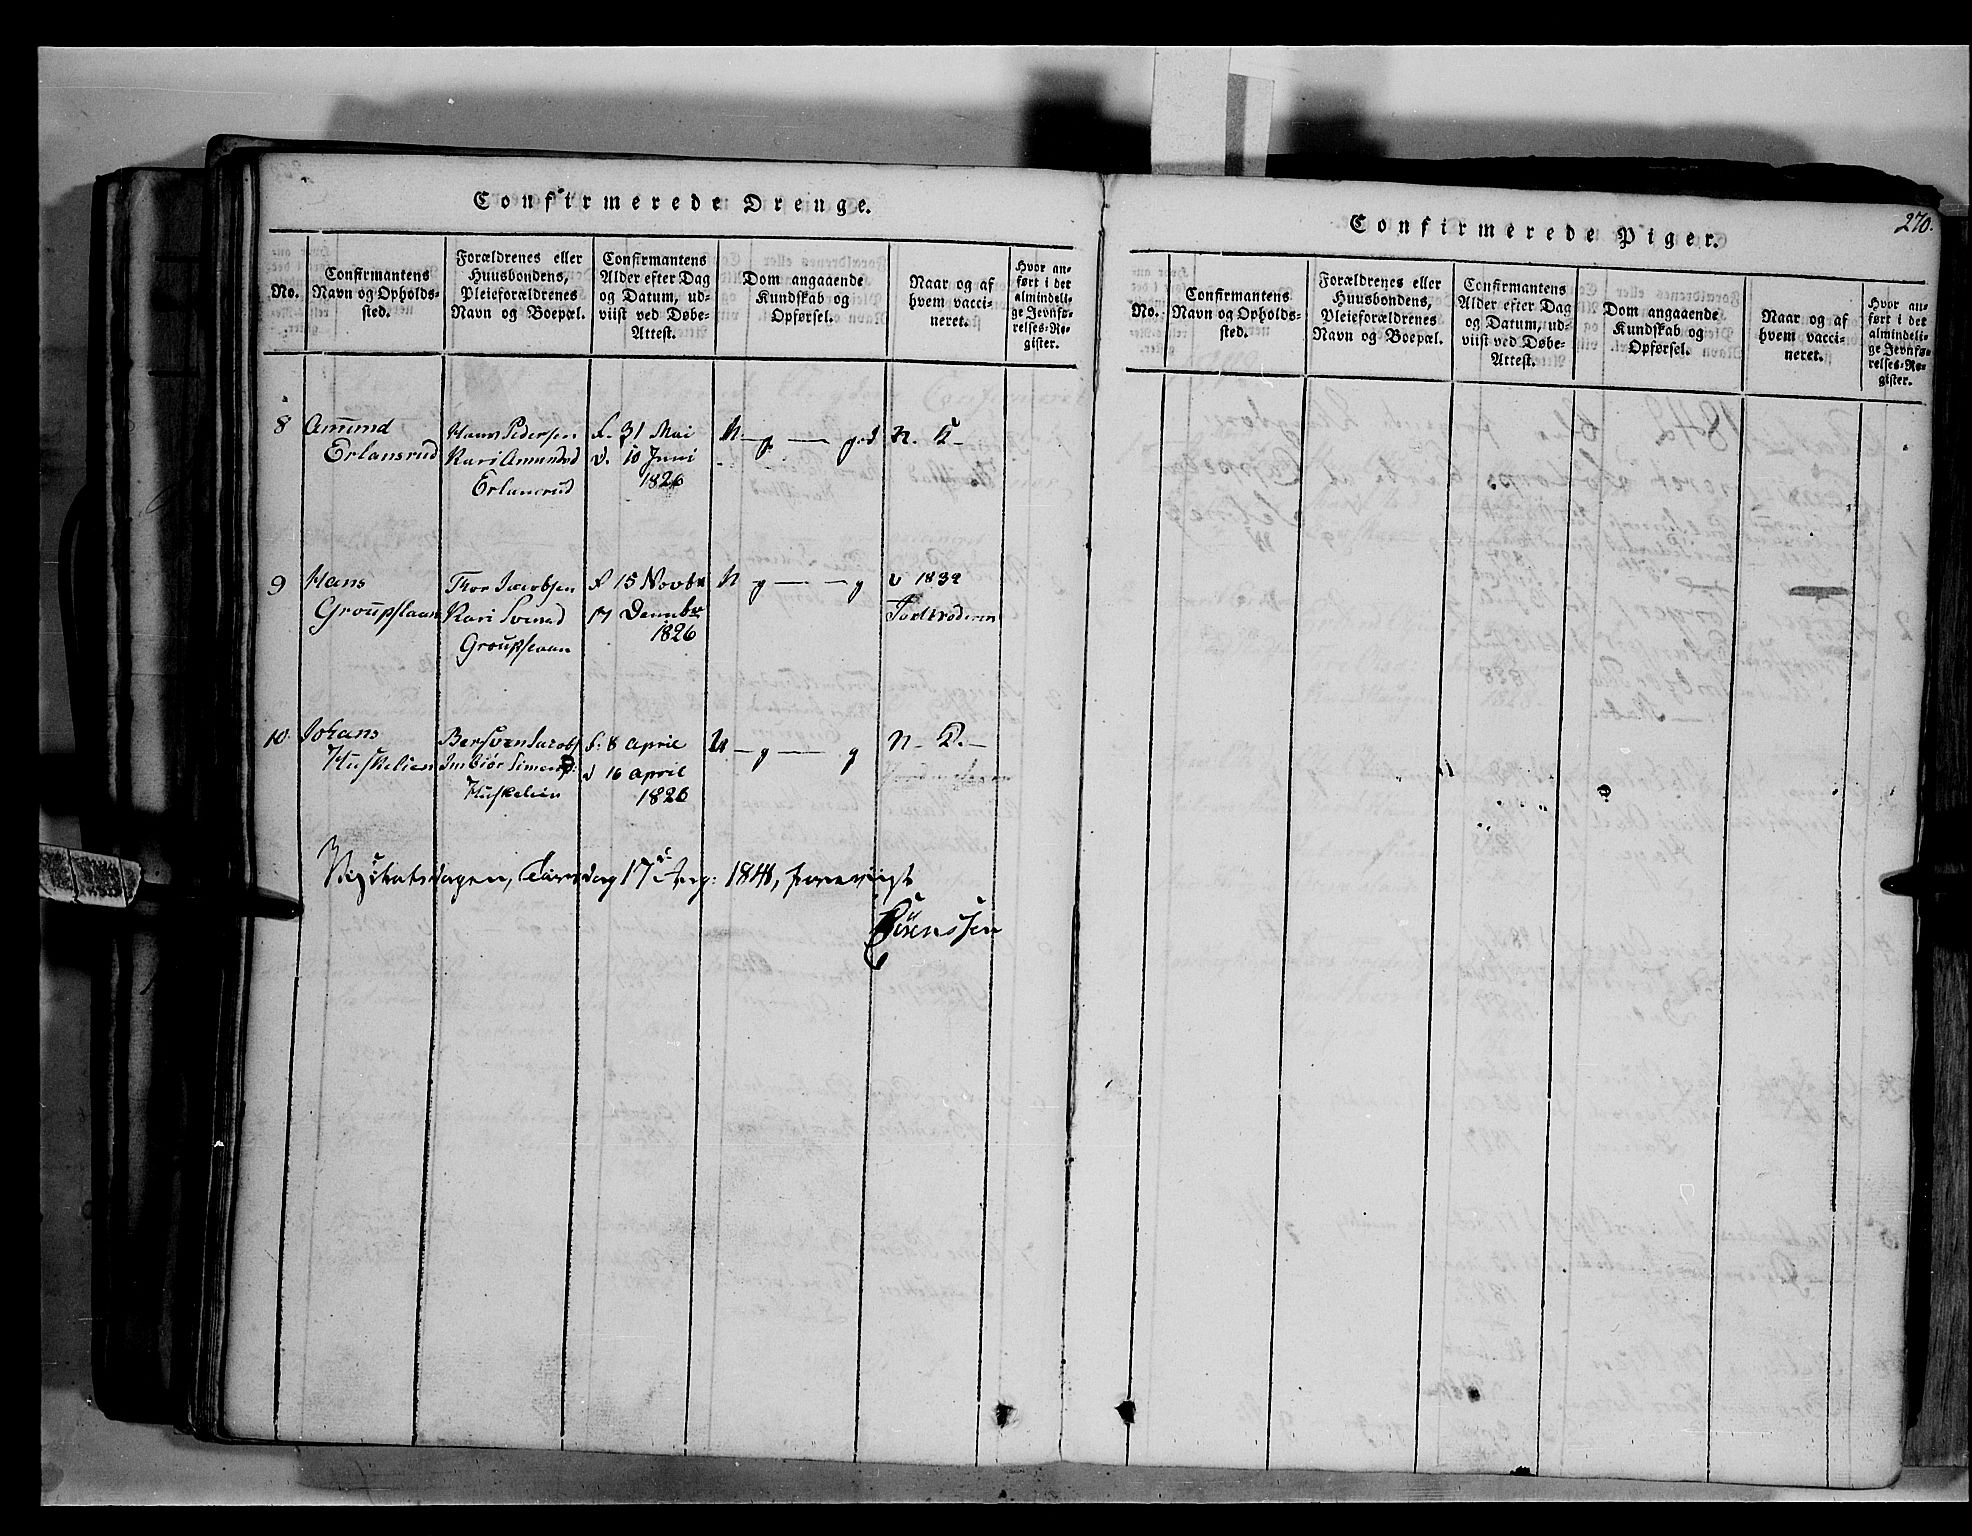 Confirmerede Drenge.
No.
Confirmantens
Navn og Opholds-
sted.
Forældrenes eller
Huusbondens,
Pleieforældrenes
Navn og Boepæl.
Confirmantens
Alder efter Dag
og Datum, ud-
viist ved Døbe-
Attest.
Dom angaaende
Kundskab og
Opførsel.
Naar og af
hvem vacci-
neret.
Hvor an-
ført i det
almindeli-
ge Jevnfø-
relses-Re-
gister.
8
Amund
Erlansrud
Hans Pedersen
Kari Amundsd
Erlansrud
f. 31 Mai
d. 10 Juni
1826
N - g - god
N. D.
9
Hans
Groupslaan
Thor Jacobsen
Kari Svensd
Groupslaan
f 15 Novbr
17 Decembr
1826
N g - g
v 1839
10.
Johans
Huskelien
Bersven Jacobs
Imbiør Simens
Huskelien
f. 8 April
d 16 April
1826
N - g - g
N - D. -
Visitatsdagen, Tirsdag 17 Aug: 1841, foreviist
Sørenssen
Confirmerede Piger.
270.
No.
Confirmantens
Navn og Opholds-
sted.
Forældrenes eller
Huusbondens,
Pleieforældrenes
Navn og Boepæl.
Confirmantens
Alder efter Dag
og Datum, ud-
viist ved Døbe-
Attest.
Dom angaaende
Kundskab og
Opførsel.
Naar og af
hvem vacci-
neret.
Hvor an-
ført i det
almindeli-
ge Jevnfø-
relses-Re-
gister.